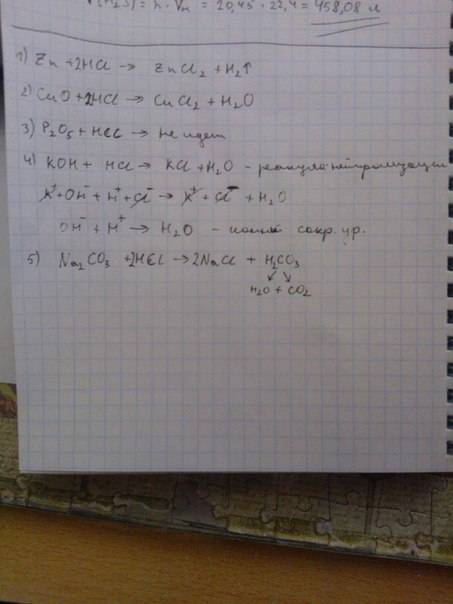 V(H₂S) = n · Vm = 20,45 · 22,4 = 458,08 л
1) Zn + 2HCl → ZnCl₂ + H₂↑
2) CuO + 2HCl → CuCl₂ + H₂O
3) P₂O₅ + HCl → не идет
4) KOH + HCl → KCl + H₂O - реакция нейтрализации
K⁺ + OH⁻ + H⁺ + Cl⁻ → K⁺ + Cl⁻ + H₂O
OH⁻ + H⁺ → H₂O - сокр. ур.
5) Na₂CO₃ + 2HCl → 2NaCl + H₂CO₃
↙ ↘
H₂O + CO₂